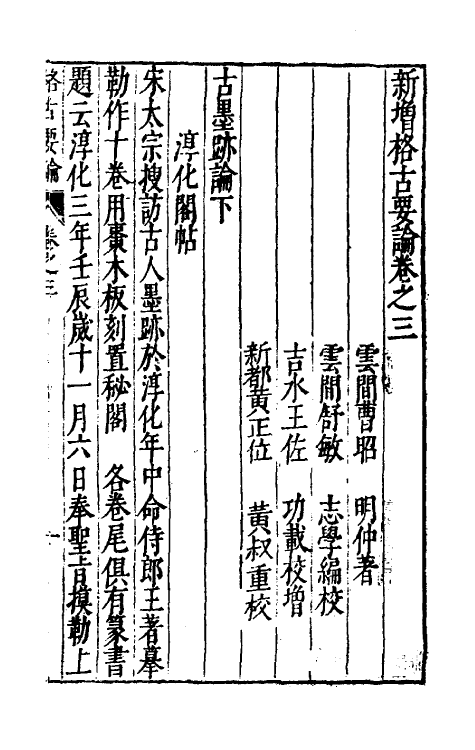 新增格古要論卷之三
雲間曹昭　明仲著
雲間舒敏　志學編校
吉水王佐　功載校增
新都黃正位　黃叔重校
古墨跡論下
淳化閣帖
宋太宗搜訪古人墨跡於淳化年中命侍郎王著摹
勒作十卷用棗木板刻置秘閣　各卷尾俱有篆書
題云淳化三年壬辰歲十一月六日奉聖旨摸勒上
格古要論　卷之三　一